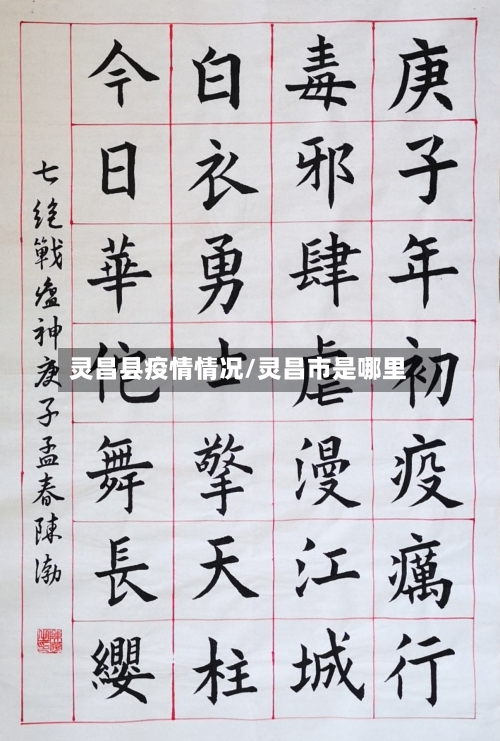 庚子年初疫癘行
毒邪肆虐漫江城
白衣勇士擎天柱
今日華佗舞長纓
七絕戰瘟神庚子孟春陳渤
灵昌县疫情情况/灵昌市是哪里